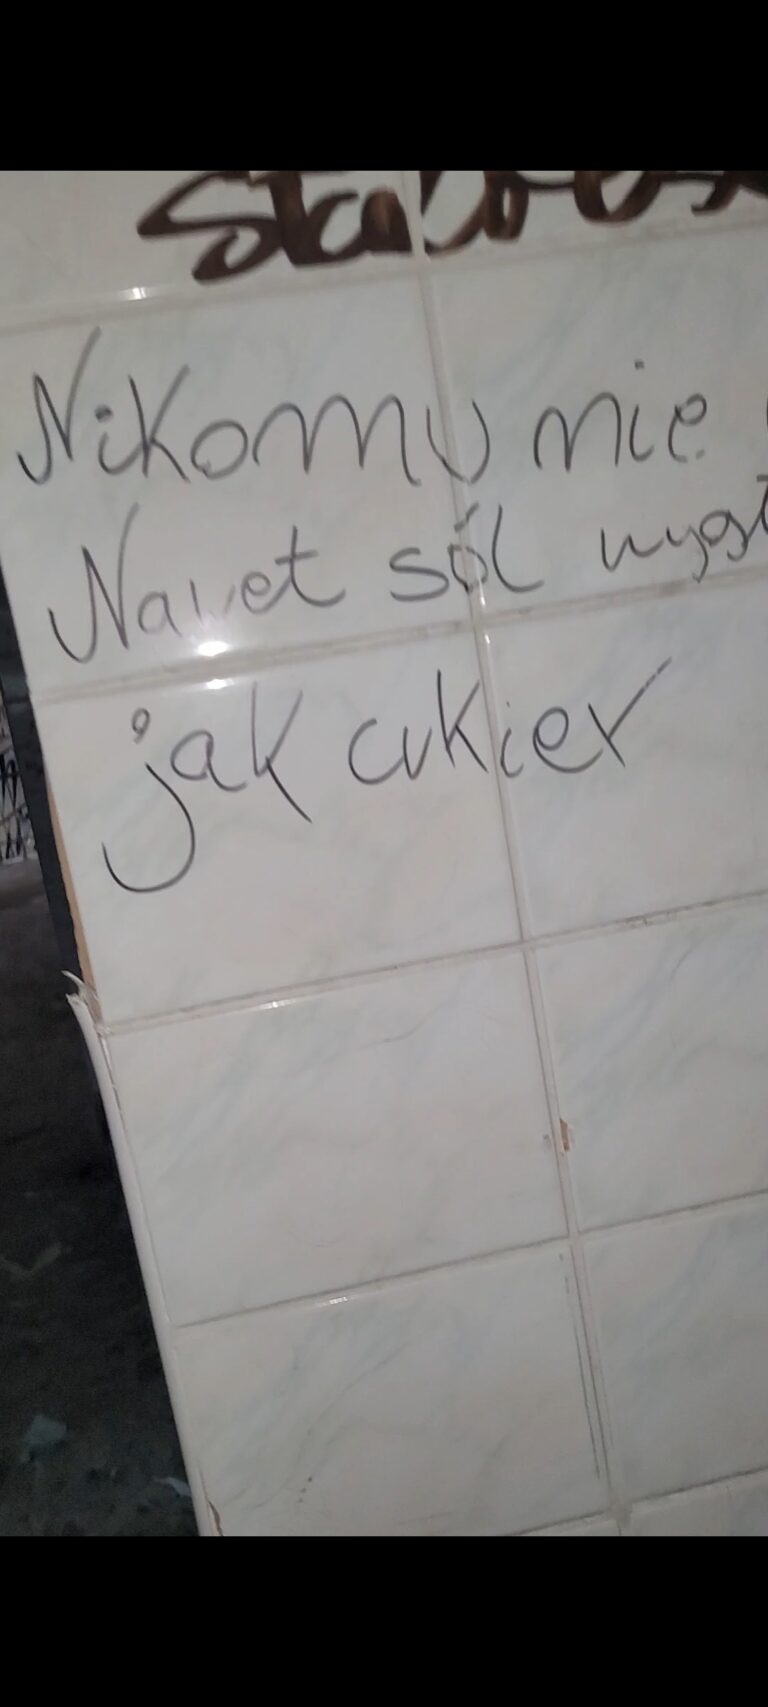 Nikomu nie
Nawet sól
jak cukier